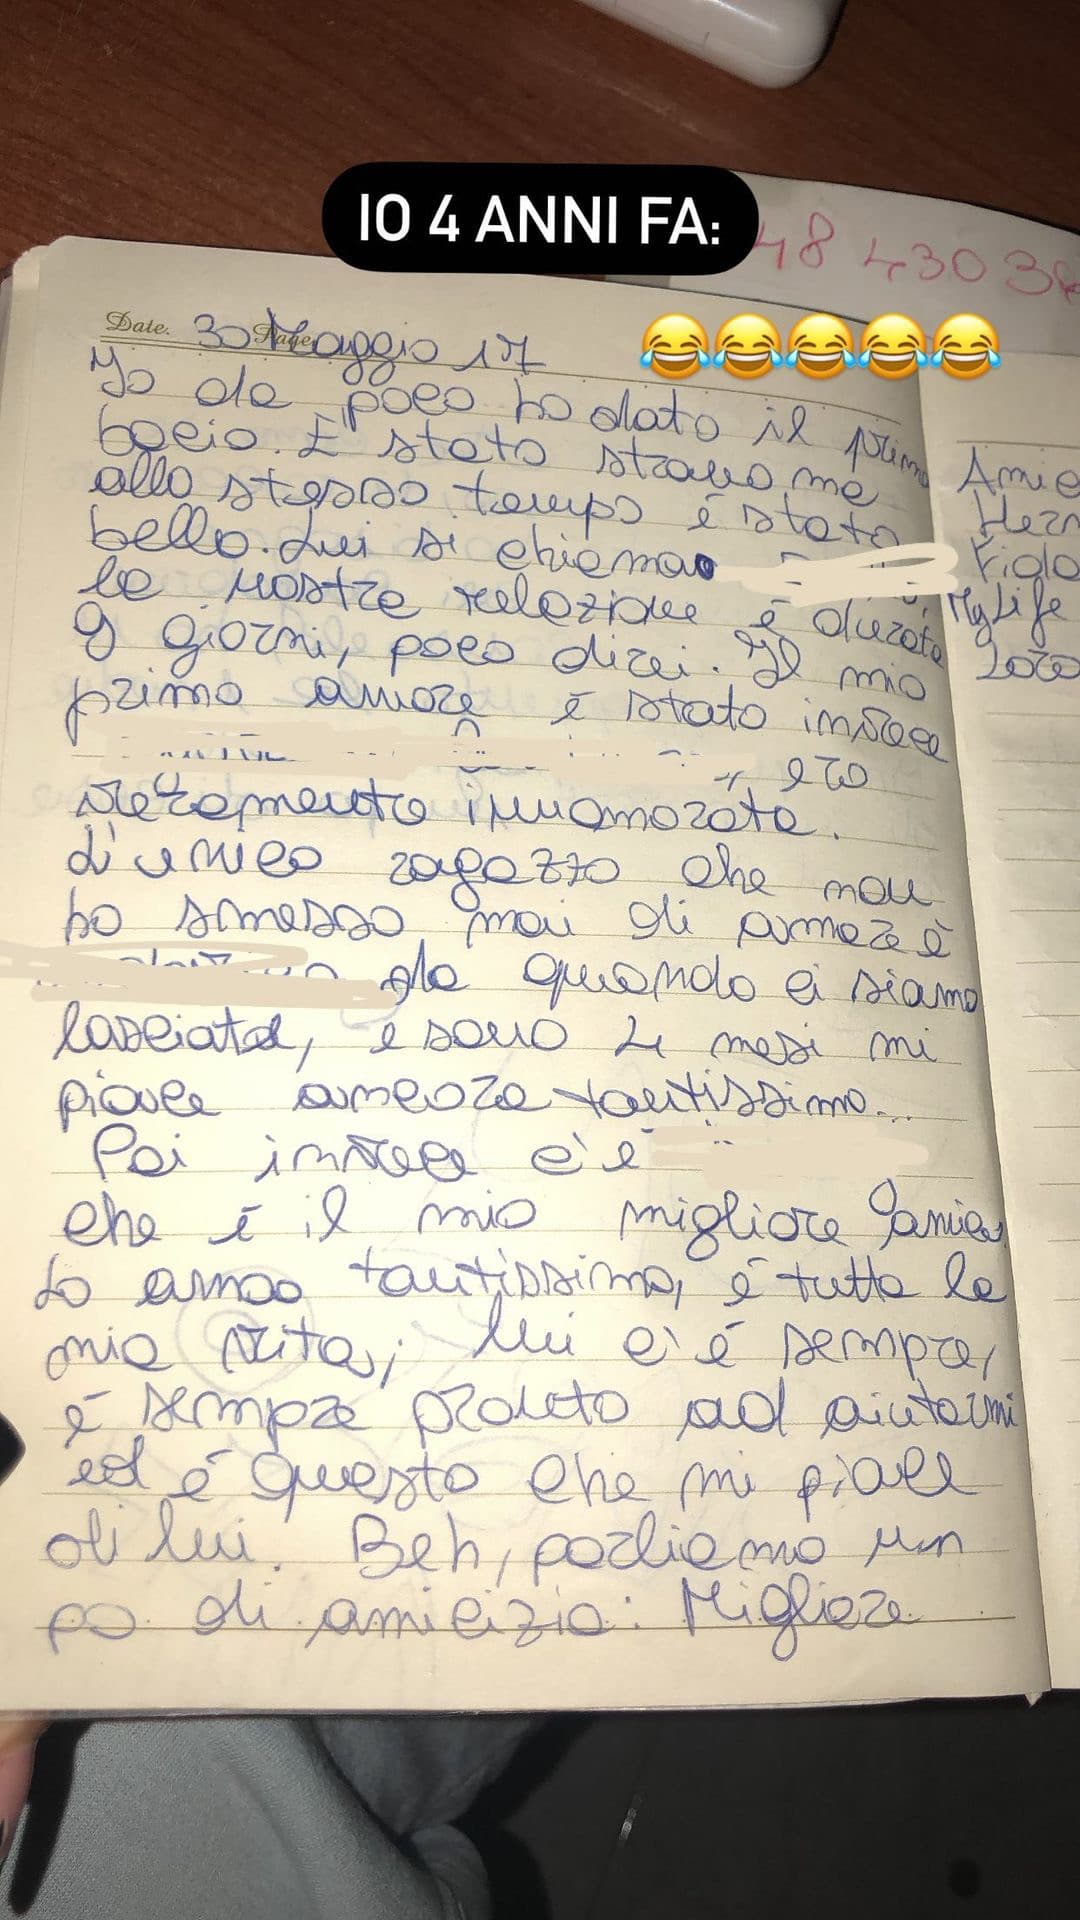 IO 4 ANNI FA:
48 430 38
😂😂😂😂😂
Date. 30 Maggio 17
Page
Io da poco ho dato il primo
bacio. È stato strano ma
allo stesso tempo è stato
bello. Lui si chiama
la nostra relazione è durata
9 giorni, poco direi. Il mio
primo amore è stato invece
ero
veramente innamorata.
L'unico ragazzo che non
ho smesso mai di amare è
da quando ci siamo
lasciati, e sono 4 mesi mi
piace ancora tantissimo...
Poi invece c'è
che è il mio migliore amico.
Lo amo tantissimo, è tutta la
mia vita; lui c'è sempre,
è sempre pronto ad aiutarmi
ed è questo che mi piace
di lui. Beh, parliamo un
po di amicizia: Migliore
Amic
My Life